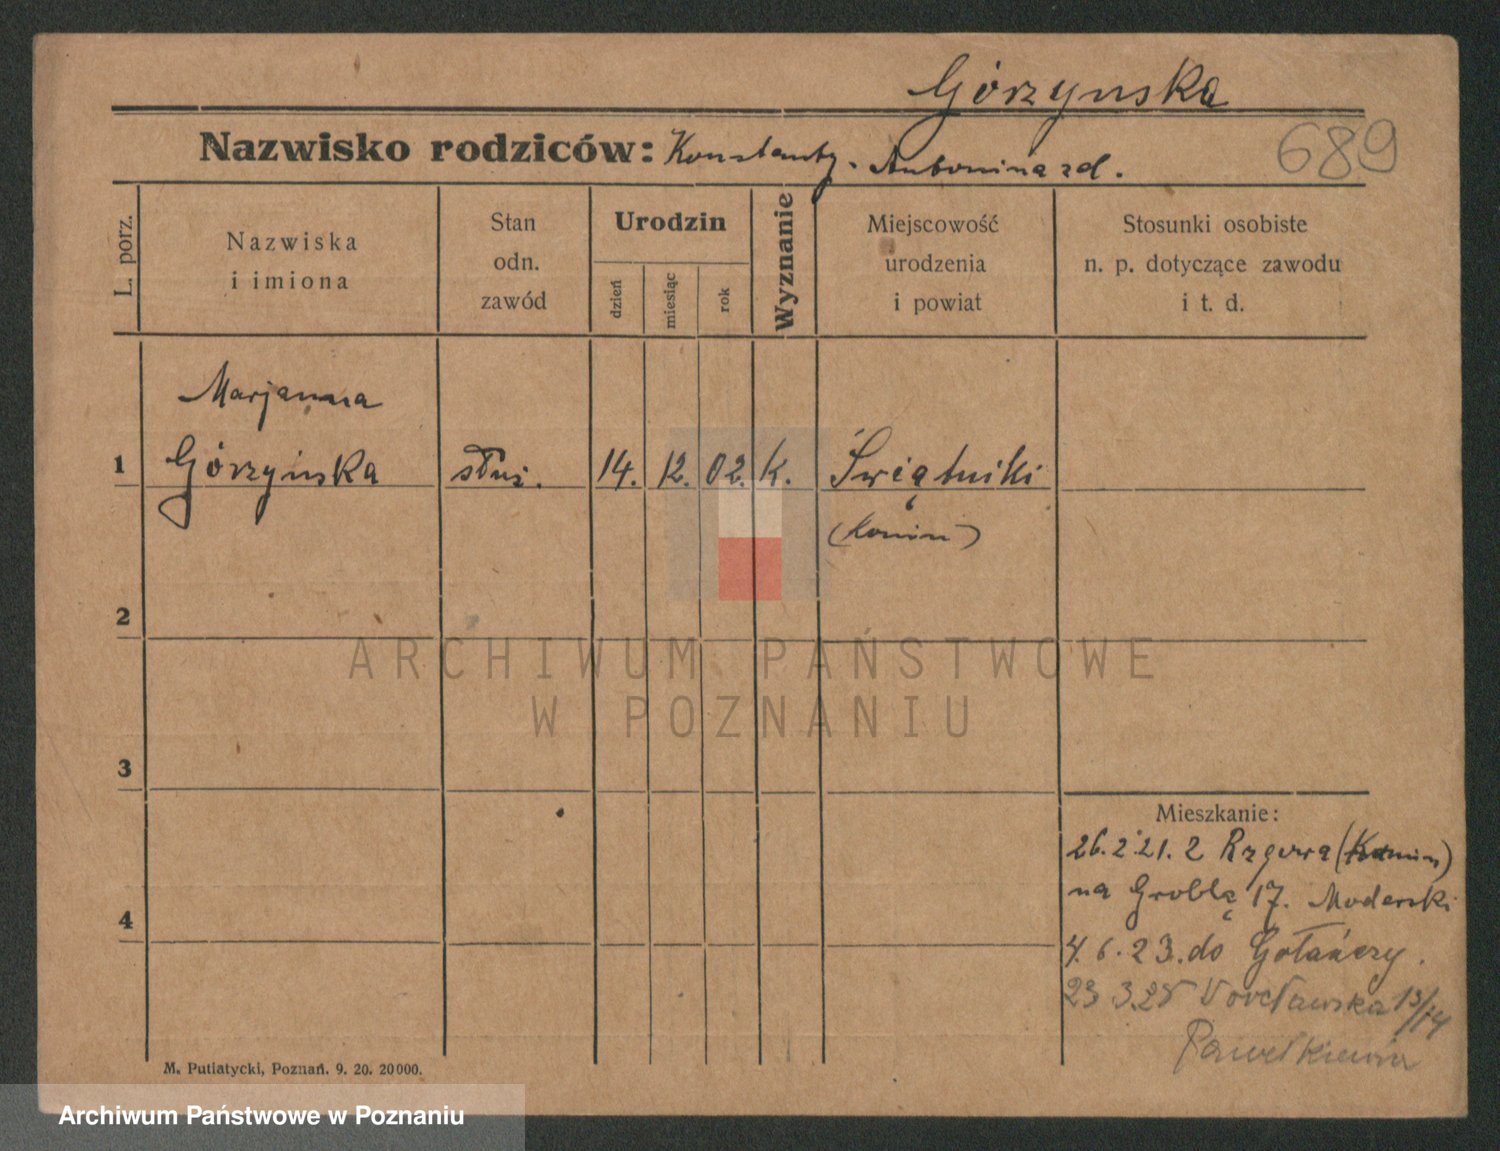 Górzynska
Nazwisko rodziców: Konstanty. Antonina zd.
689
L. porz.
Nazwiska
i imiona
Stan
odn.
zawód
Urodzin
dzień
miesiąc
rok
Wyznanie
Miejscowość
urodzenia
i powiat
Stosunki osobiste
n. p. dotyczące zawodu
i t. d.
Marjanna
1 Górzyńska służ. 14. 12. 02. k. Świątniki
(Konin)
2
ARCHIWUM PAŃSTWOWE
W POZNANIU
3
Mieszkanie:
26.2.21. z Rzgowa (Konin)
na Groblą 17. Moderski
4
4.6.23. do Gołańczy.
23 3.25 13/14
M. Putiatycki, Poznań. 9. 20. 20000.
Archiwum Państwowe w Poznaniu